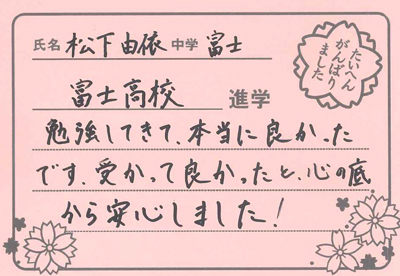 氏名 松下由依 中学 富士
富士高校 進学
たいへん
がんばり
ました
勉強してきて、本当に良かった
です。受かって良かったと、心の底
から安心しました!